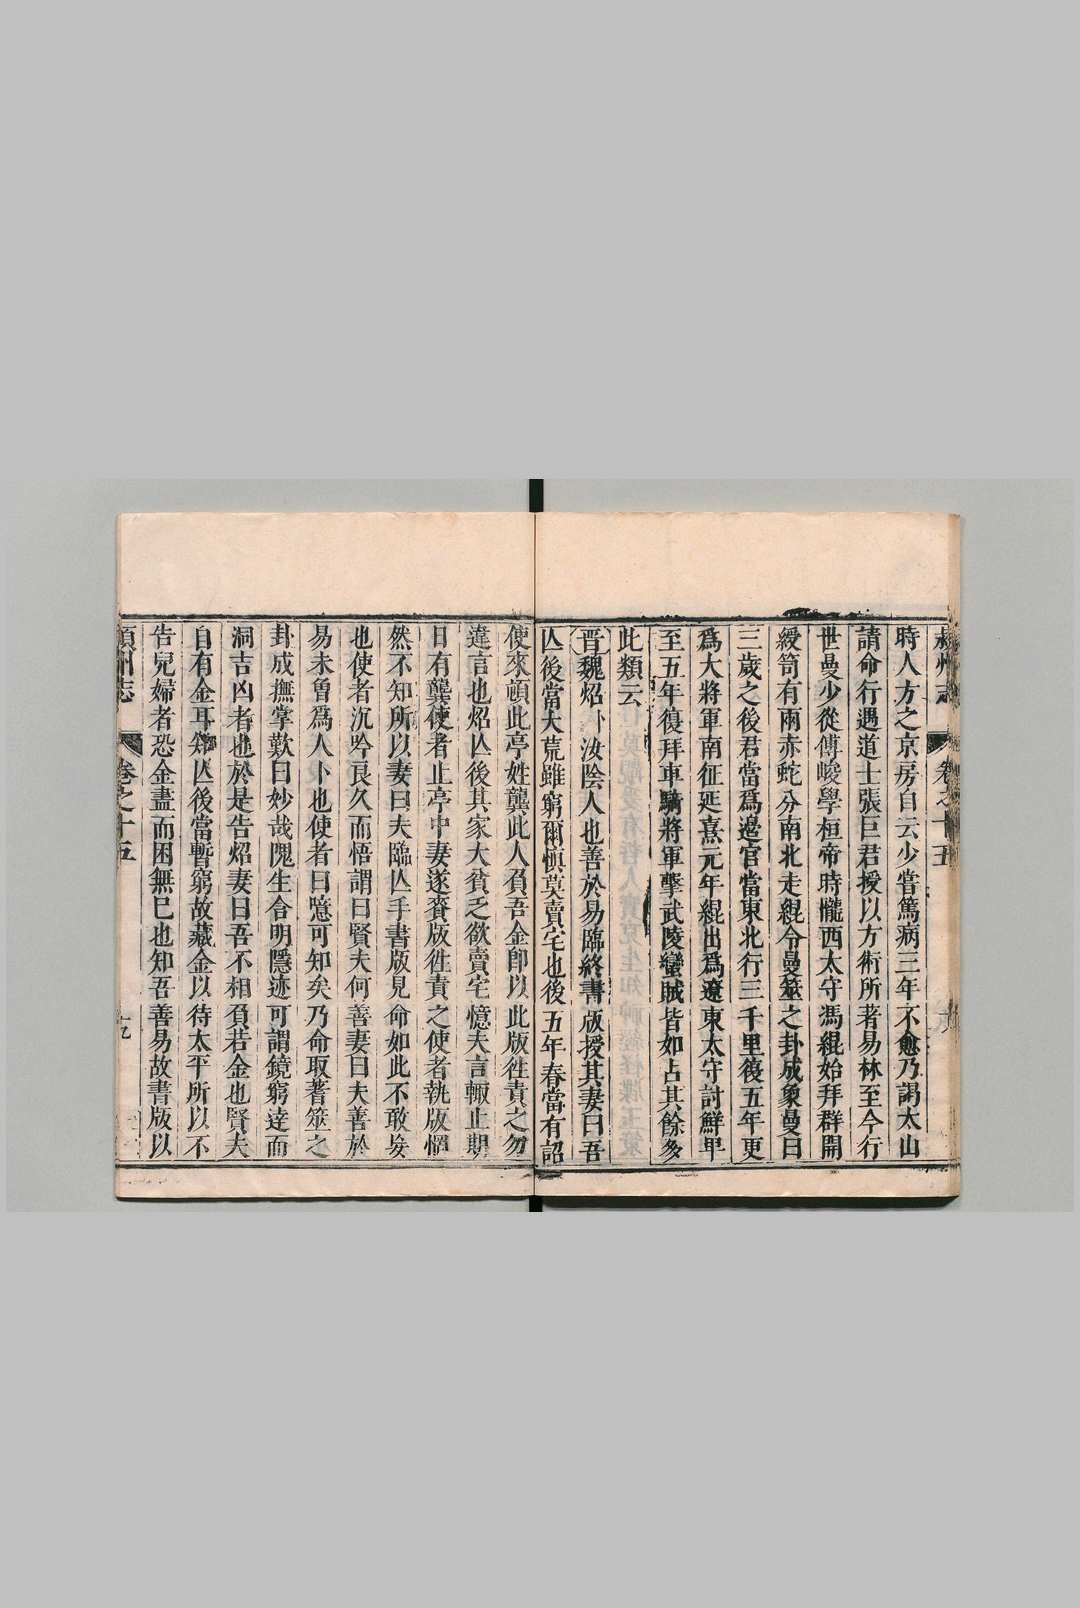 潁州志 卷之十五
時人方之京房自云少嘗篤病三年不愈乃謁太山
請命行遇道士張巨君授以方術所著易林至今行
世曼少從傅峻學桓帝時隴西太守馮緄始拜群開
綬笥有兩赤蛇分南北走緄令曼筮之卦成象曼曰
三歲之後君當爲邊官當東北行三千里後五年更
爲大將軍南征延熹元年緄出爲遼東太守討鮮卑
至五年復拜車騎將軍擊武陵蠻賊皆如占其餘多
此類云
晋魏炤卜汝陰人也善於易臨終書版授其妻曰吾
亾後當大荒雖窮爾慎莫賣宅也後五年春當有詔
使來頓此亭姓龔此人負吾金卽以此版徃責之勿
違言也炤亾後其家大貧乏欲賣宅憶夫言輙止期
日有龔使者止亭中妻遂賫版徃責之使者執版惘
然不知所以妻曰夫臨亾手書版見命如此不敢妄
也使者沉吟良久而悟謂曰賢夫何善妻曰夫善於
易未曾爲人卜也使者曰噫可知矣乃命取蓍筮之
卦成撫掌歎曰妙哉隗生含明隱迹可謂鏡窮逹而
洞吉凶者也於是告炤妻曰吾不相負若金也賢夫
自有金耳知亾後當暫窮故藏金以待太平所以不
告兒婦者恐金盡而困無已也知吾善易故書版以
潁州志 卷之十五 十九